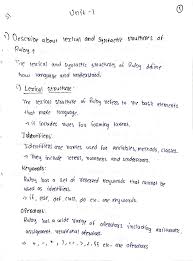 Unit - 1
1) Describe about lexical and Syntactic structures of
Ruby?
The lexical and syntactic structures of Ruby define
how language and understood.
i) Lexical structure:
The lexical structure of Ruby refers to the basic elements
that make language.
→ it includes rules for forming
Identifiers:
Identifiers are names used for variables, methods, classes.
→ They include letters, numbers and underscores.
Keywords:
Ruby has a set of reserved keywords that cannot be
used as identifiers.
→ if, else, def, class, do etc. are keywords
Operators:
Ruby has a wide range of operators including
assignment,
etc are operators